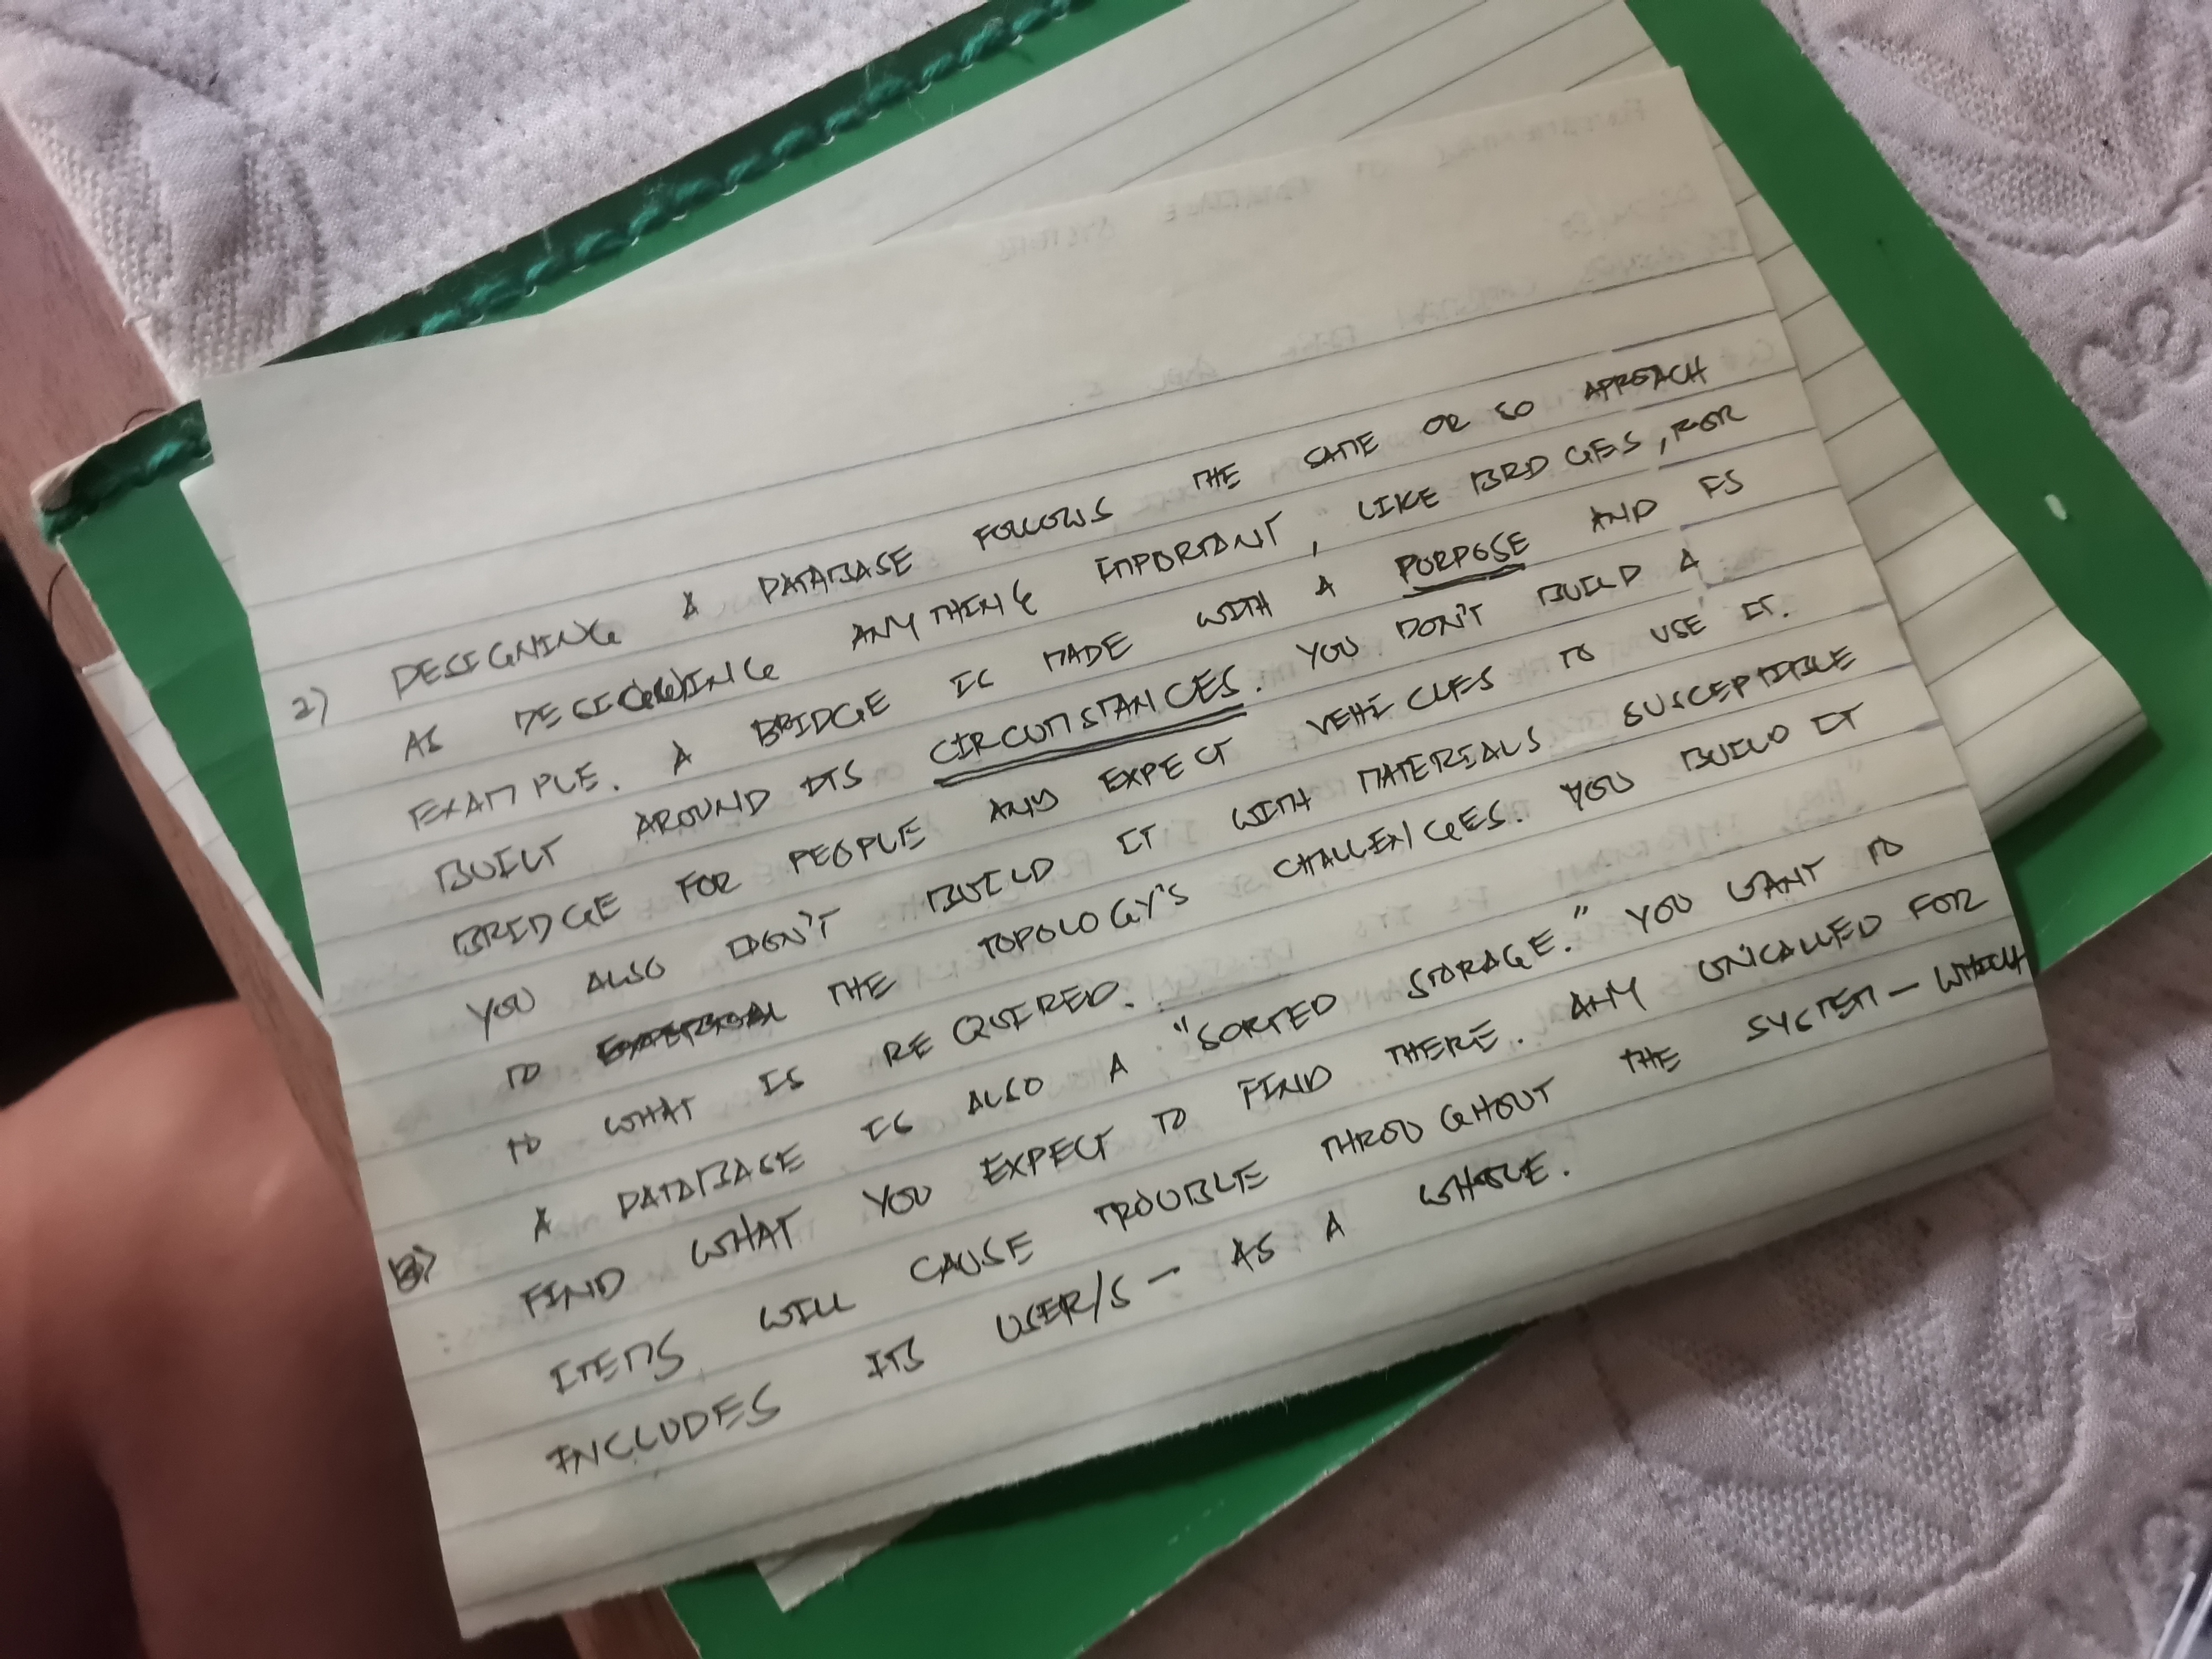 2) DESIGNING A DATABASE FOLLOWS THE SAME OR SO APROACH
AS DESIGNING ANYTHING IMPORTANT, LIKE BRIDGES, FOR
EXAMPLE. A BRIDGE IS MADE WITH A PURPOSE AND IS
BUILT AROUND ITS CIRCUMSTANCES. YOU DON'T BUILD A
BRIDGE FOR PEOPLE AND EXPECT VEHICLES TO USE IT.
YOU ALSO DON'T BUILD IT WITH MATERIALS SUSCEPTIBLE
TO THE TOPOLOGY'S CHALLENGES. YOU BUILD IT
TO WHAT IS REQUIRED.
B) A DATABASE IS ALSO A "SORTED STORAGE." YOU WANT TO
FIND WHAT YOU EXPECT TO FIND THERE. ANY UNCALLED FOR
ITEMS WILL CAUSE TROUBLE THROUGHOUT THE SYSTEM - WHICH
INCLUDES ITS USER/S - AS A WHOLE.